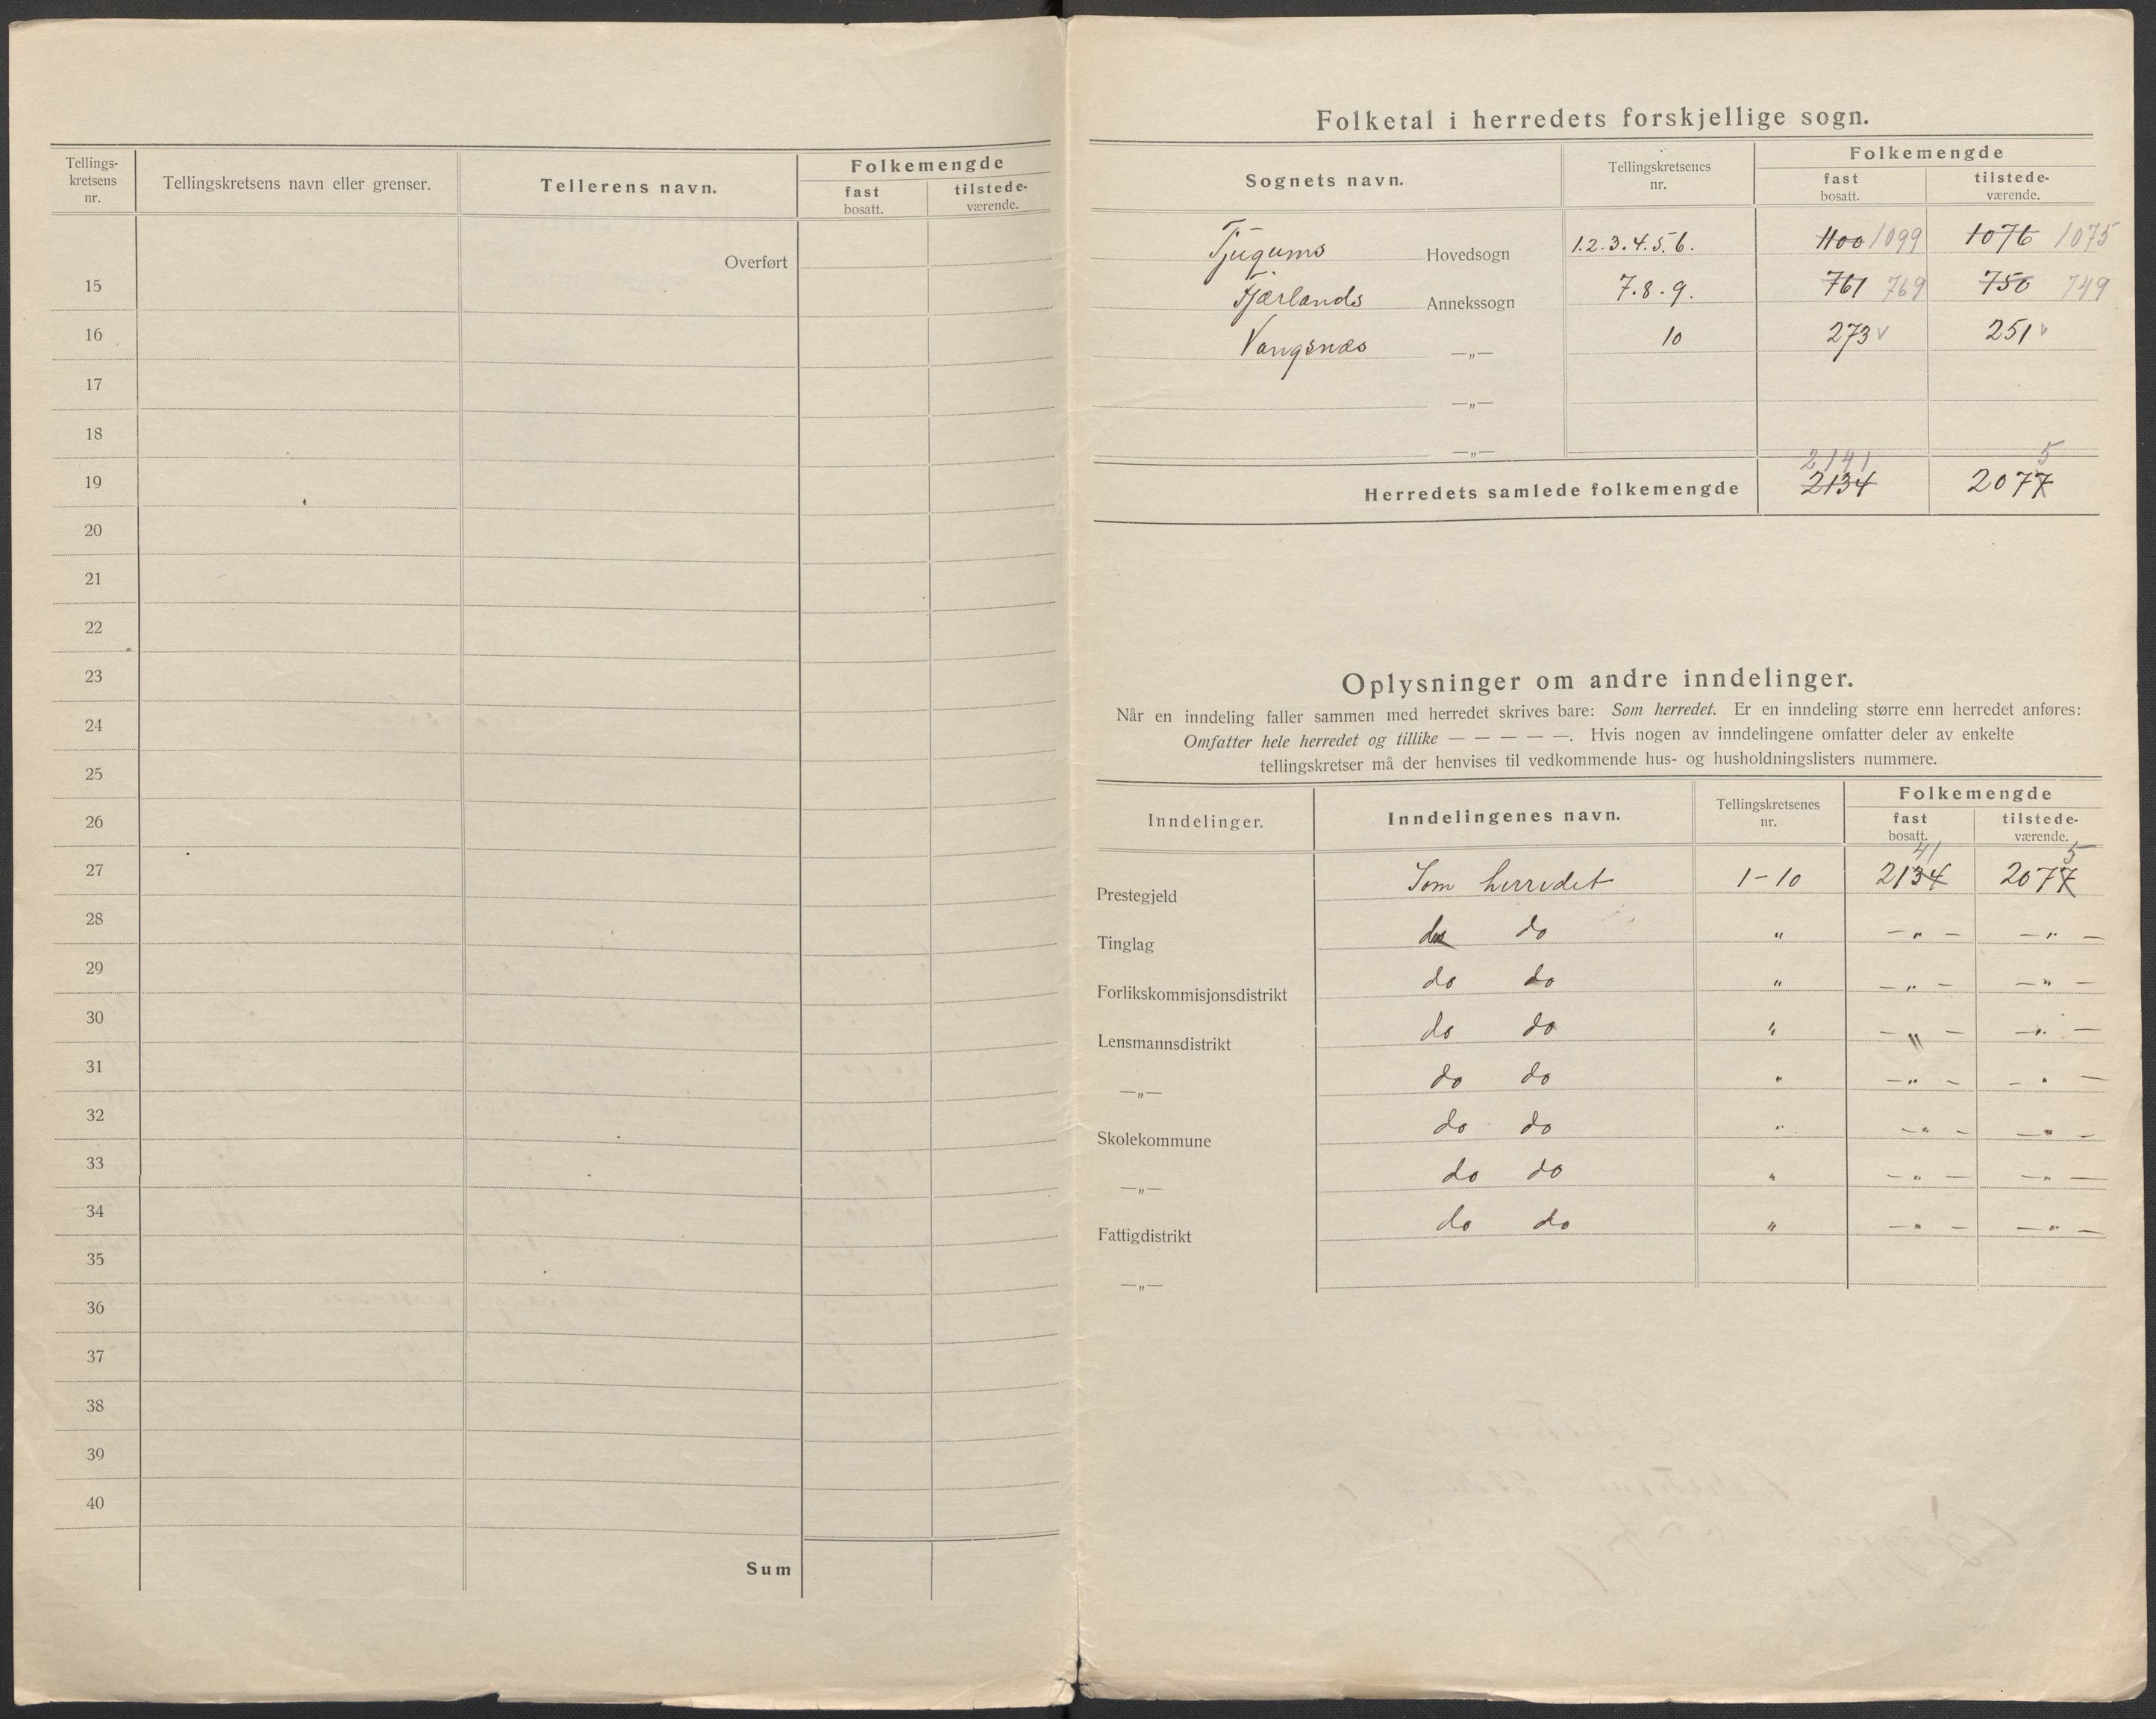 Tellings-
kretsens
nr.
Tellingskretsens navn eller grenser.
Tellerens navn.
Folkemengde
fast
bosatt.
tilstede-
værende.
Overført
15
16
17
18
19
20
21
22
23
24
25
26
27
28
29
30
31
32
33
34
35
36
37
38
39
40
Sum
Folketal i herredets forskjellige sogn.
Sognets navn.
Tellingskretsenes
nr.
Folkemengde
fast
bosatt.
tilstede-
værende.
Tjugums Hovedsogn 1.2.3.4.5.6. 1100 1099 1076 1075
Fjærlands Annekssogn 7.8.9. 761 769 750 749
Vangsnæs —„— 10 273 v 251 v
—„—
—„—
2141 5
Herredets samlede folkemengde 2134 2077
Oplysninger om andre inndelinger.
Når en inndeling faller sammen med herredet skrives bare: Som herredet. Er en inndeling større enn herredet anføres:
Omfatter hele herredet og tillike — — — — —. Hvis nogen av inndelingene omfatter deler av enkelte
tellingskretser må der henvises til vedkommende hus- og husholdningslisters nummere.
Inndelinger.
Inndelingenes navn.
Tellingskretsenes
nr.
Folkemengde
fast
bosatt.
tilstede-
værende.
41 5
Prestegjeld Som herredet 1-10 2134 2077
Tinglag do do " — " — — " —
Forlikskommisjonsdistrikt do do " — " — — " —
Lensmannsdistrikt do do " — " — — " —
—„— do do " — " — — " —
Skolekommune do do " — " — — " —
—„— do do " — " — — " —
Fattigdistrikt do do " — " — — " —
—„—